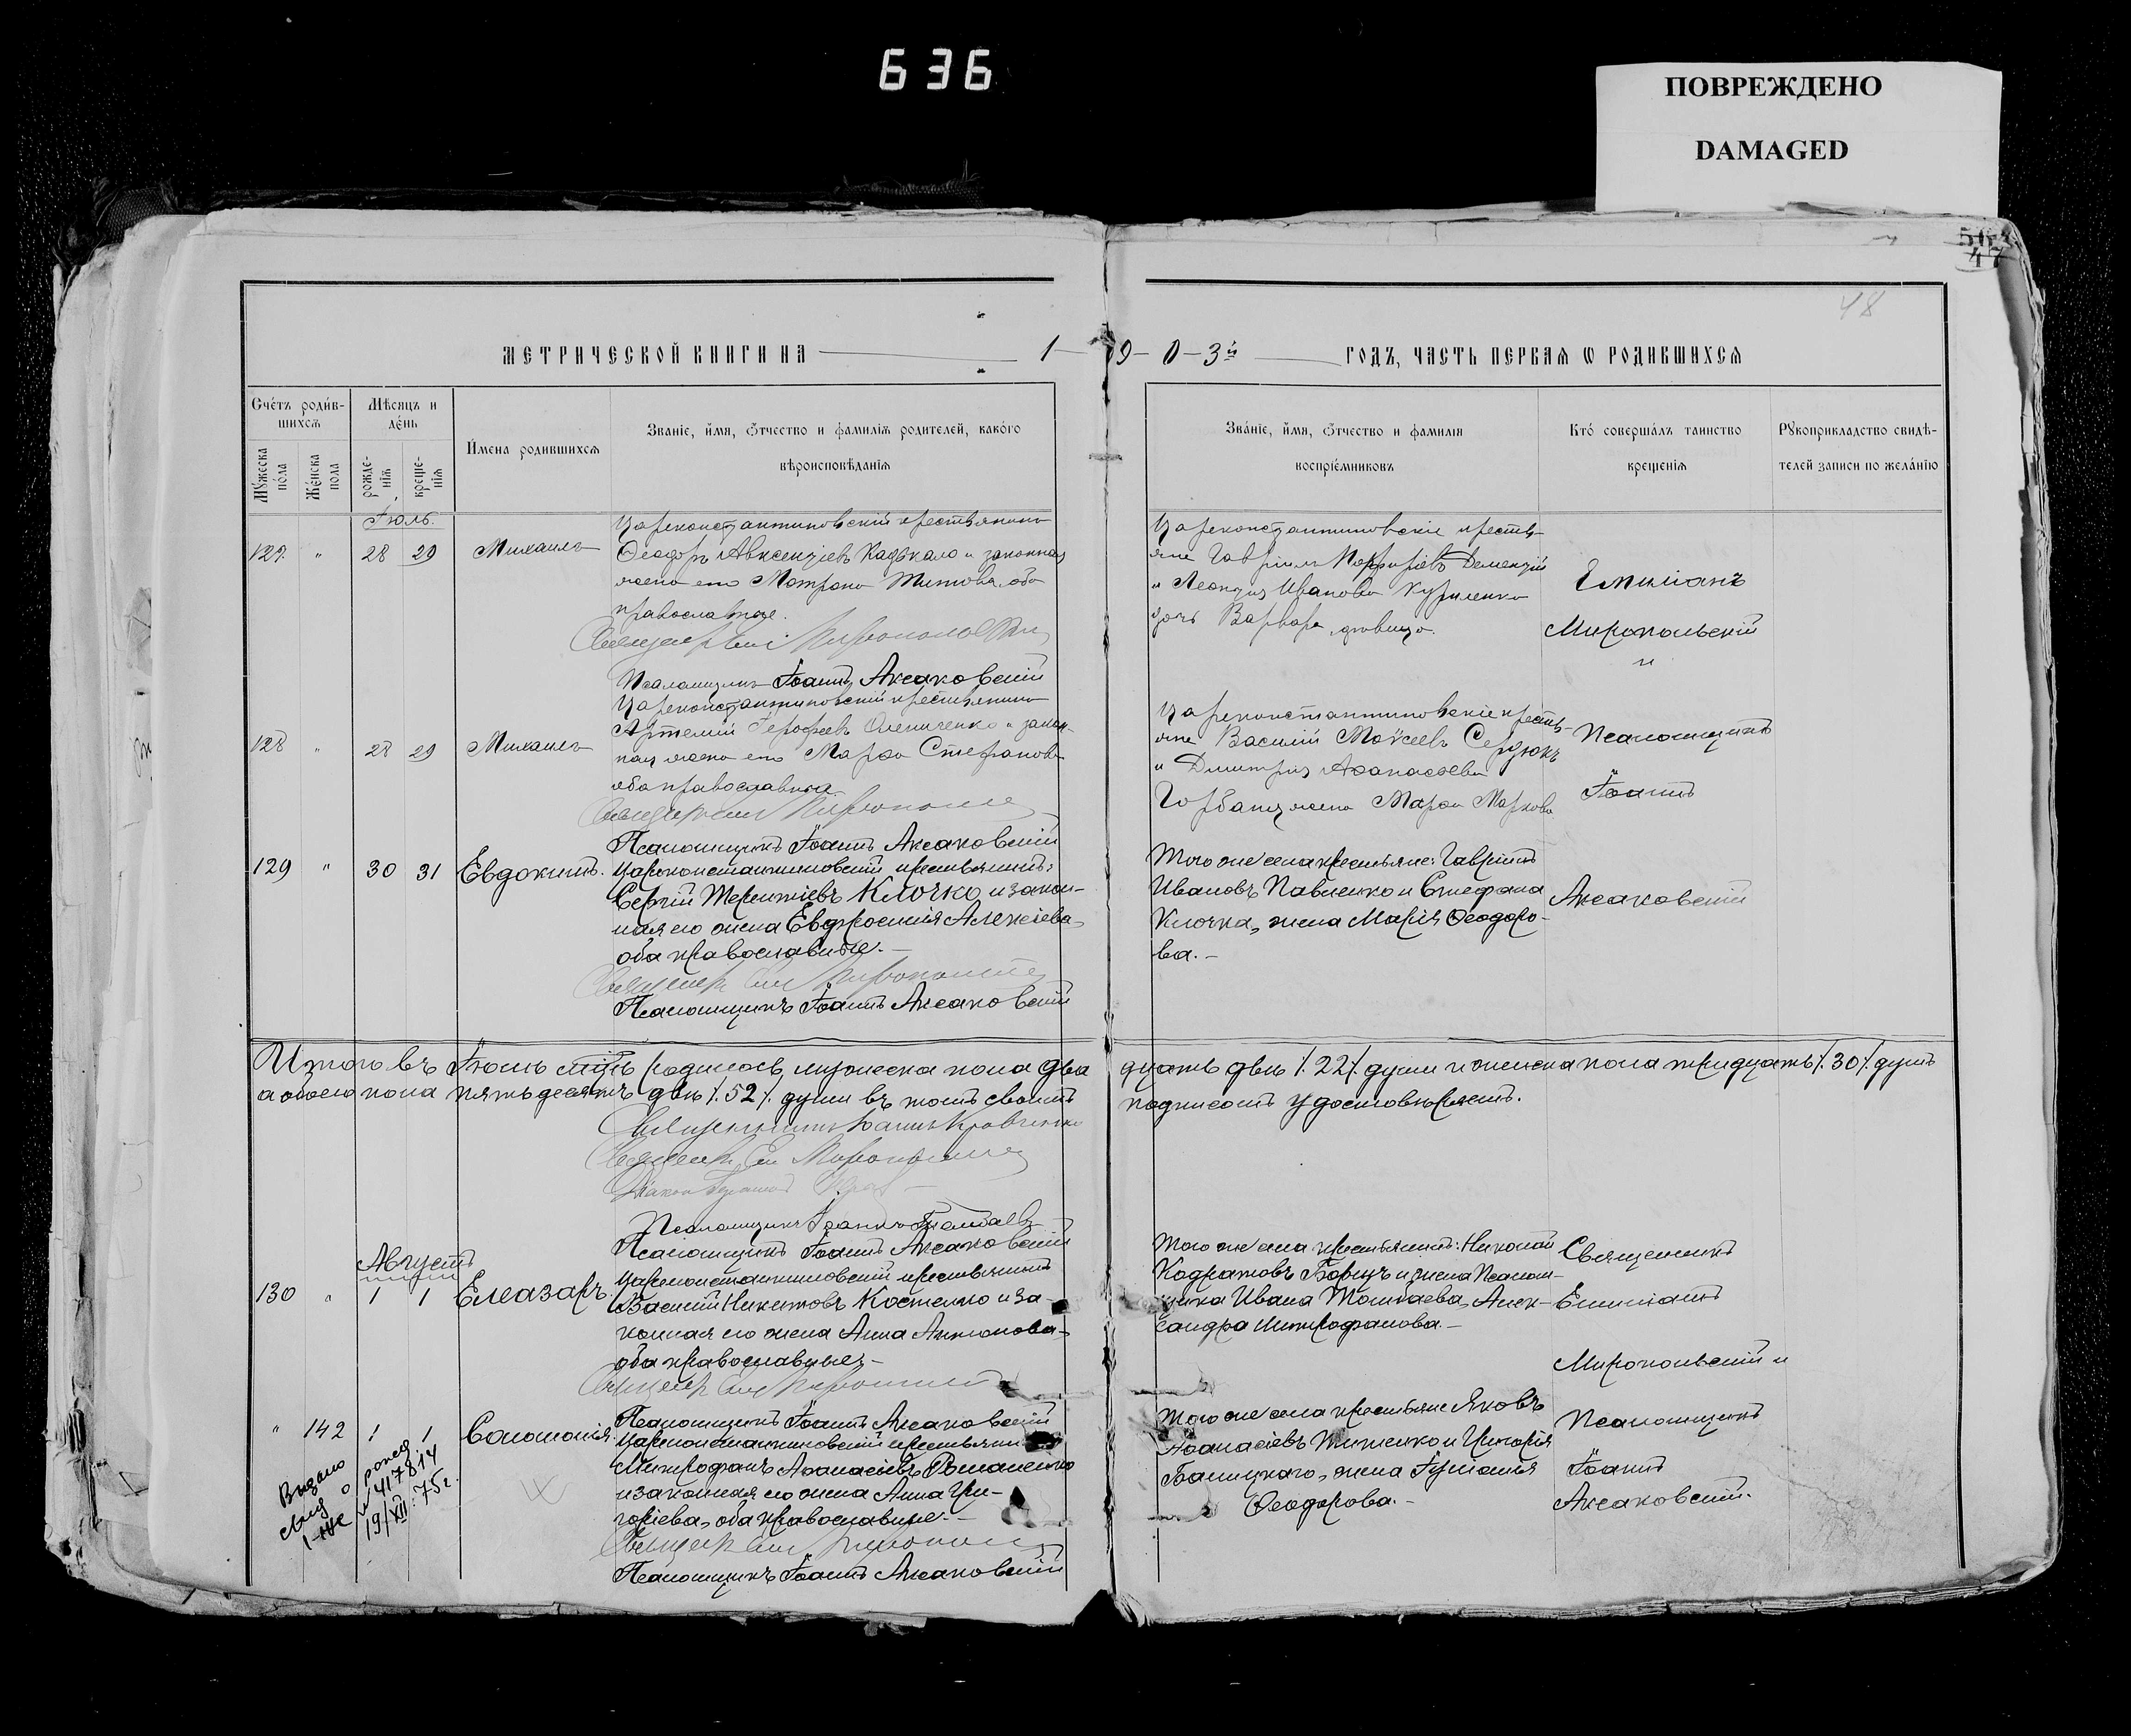 636
ПОВРЕЖДЕНО
DAMAGED
48
МЕТРИЧЕСКОЙ КНИГИ НА 1-9-0-3й ГОДЪ, ЧАСТЬ ПЕРВАЯ Ѡ РОДИВШИХСЯ
Счетъ родив-
шихся
Мѣсяцъ и
день
Мужеска
пола
Женска
пола
рожде-
нія
креще-
нія
Имена родившихся
Званіе, имя, ѿчество и фамилія родителей, какого
вѣроисповѣданія
Званіе, имя, ѿчество и фамилія
воспріемниковъ
Кто совершалъ таинство
крещенія
Рукоприкладство свидѣ-
телей записи по желанію
Іюль.
127. " 28 29 Михаилъ
Цареконстантиновскій крестьянинъ
Ѳеодоръ Авксентіевъ Кадькало и законная
жена его Матрона Титова, оба
православные.
Псаломщикъ Іоаннъ Аксаковскій
Цареконстантиновскіе кресть-
яне Гавріилъ Порфиріевъ Дементій
и Леонтія Иванова Куриленко
дочь Варвара, дѣвица.
Емиліанъ
Миропольскій
и
128 " 28 29 Михаилъ
Цареконстантиновскій крестьянинъ
Артемій Іерофеевъ Оленченко и закон-
ная жена его Марѳа Стефанова
оба православные.
Псаломщикъ Іоаннъ Аксаковскій
Цареконстантиновскіе кресть-
яне Василій Моѵсеевъ Сердюкъ
и Димитрія Аѳанасьева
Горбаня жена Марѳа Маркова
Псаломщикъ
Іоаннъ
129 " 30 31 Евдокимъ.
Цареконстантиновскій крестьянинъ:
Сергій Терентіевъ Клочко и закон-
ная его жена Евфросинія Алексіева,
оба православные.-
Псаломщикъ Іоаннъ Аксаковскій
Того же села крестьяне: Гавріилъ
Ивановъ Павленко и Стефана
Клочка, жена Марія Ѳеодоро-
ва.-
Аксаковскій
Итого въ Іюлѣ м-цѣ родилось мужеска пола двадцать двѣ /.22/. души и женска пола тридцать /.30/. душъ
а обоего пола пятьдесятъ двѣ /.52/. души въ томъ своимъ подписомъ удостовѣряемъ.
Священникъ Іоаннъ Кравченко
Псаломщикъ Іоаннъ Аксаковскій
Августъ
130 " 1 1 Елеазаръ.
Цареконстантиновскій крестьянинъ
Василій Никитовъ Костенко и за-
конная его жена Анна Антонова,
оба православные.-
Псаломщикъ Іоаннъ Аксаковскій
Того же села крестьянинъ: Николай
Кодратовъ Борецъ и жена Псалом-
щика Ивана Толмаева, Алек-
сандра Митрофанова.-
Священникъ
Емиліанъ
Миропольскій и
" 142 1 1 Соломонія.
Цареконстантиновскій крестьянин
Митрофанъ Аѳанасіевъ Романенко
и законная его жена Анна Гри-
горіева, оба православные.-
Псаломщикъ Іоаннъ Аксаковскій
Того же села крестьяне Яковъ
Аѳанасіевъ Титенко и Григорія
Баницкаго, жена Іуліанія
Ѳеодорова.-
Псаломщикъ
Іоаннъ
Аксаковскій.
Выдано
свид о рожд
I-НС № 417814
19/XII.75г.